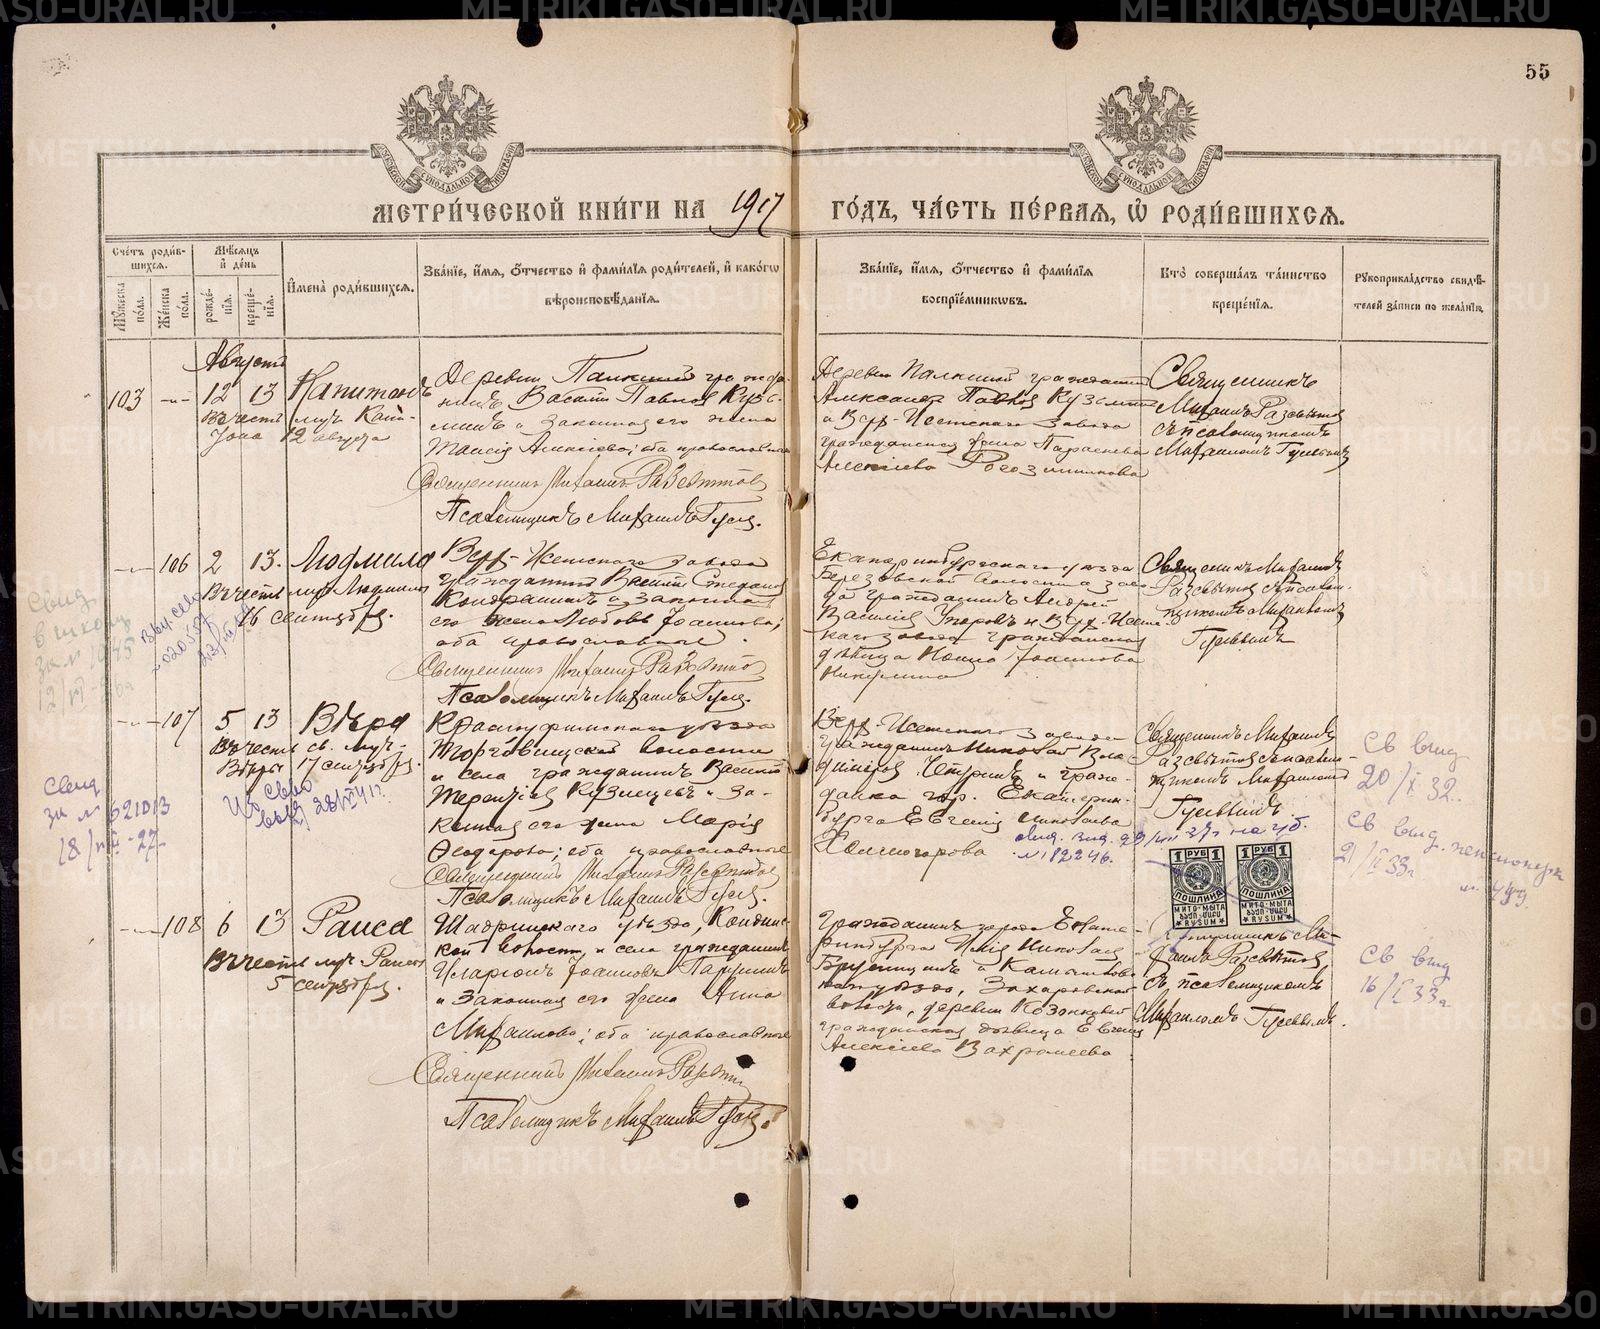 55
МЕТРИ́ЧЕСКОЙ КНИ́ГИ НА 1917 ГО́ДЪ, ЧА́СТЬ ПЕ́РВАЯ, Ѡ РОДИ́ВШИХСЯ.
Сче́тъ роди́вшихся.
Мꙋ́жеска по́ла.
Же́нска по́ла.
Мѣ́сяцъ и҆ де́нь
рожде́нїя.
креще́нїя.
И҆мена̀ роди́вшихся.
Зва́нїе, и҆́мя, ѻ҆́тчество и҆ фами́лїя роди́телей, и҆ како́гѡ
вѣроисповѣ́данїя.
Зва́нїе, и҆́мя, ѻ҆́тчество и҆ фами́лїя
воспрїе́мниковъ.
Кто̀ соверша́лъ та́инство
креще́нїя.
Рꙋкоприкла́дство свидѣ́телей за́писи по жела́нїю.
Августъ
103 -"- 12 13 Капитонъ
въ честь муч. Капитона 12 августа
Деревни Палкиной гражданинъ Василий Павловъ Кузьминъ и законная его жена
Таисія Алексіева; оба православные
Священникъ Михаилъ Разсвѣтовъ
Псаломщикъ Михаилъ Гусев.
Деревни Палкиной гражданинъ
Александръ Павловъ Кузьминъ
и Верх-Исетскаго завода
гражданская жена Параскева
Алексіева Рогозинникова
Священникъ
Михаилъ Разсвѣтов
съ псаломщикомъ
Михаиломъ Гусевымъ
-"- 106 2 13. Людмила
Въ честь муч. Людмилы
16 сентября.
Верх-Исетскаго завода
гражданинъ Василій Стефановъ
Кондрашинъ и законная
его жена Любовь Іоаннова;
оба православные.
Священникъ Михаилъ Разсвѣтов
Псаломщикъ Михаилъ Гусев.
Екатеринбургскаго уѣзда
Березовской волости и завода гражданинъ Андрей
Василіев и Верх-Исетскаго завода гражданская
дѣвица Іоаннова
Никулина
Священникъ Михаилъ
Разсвѣтов съ псаломщикомъ Михаиломъ
Гусевымъ
-"- 107 5 13 Вѣра
Въ честь св. муч.
Вѣры 17 сентября.
Красноуфимскаго уѣзда
Торговищской волости
и села гражданинъ Василій
Терентіев Кузнецевъ и законная его жена Марія
Ѳеодорова; оба православные
Священникъ Михаилъ Разсвѣтов
Псаломщикъ Михаилъ Гусев.
Верх-Исетскаго завода
гражданинъ Николай Владиміров и гражданка гор. Екатеринбурга Евгенія Николаева
Холмогорова
№ 182246.
Священникъ Михаилъ
Разсвѣтов съ псаломщикомъ Михаиломъ
Гусевымъ
1 РУБ 1
ПОШЛИНА
RYSUM
1 РУБ 1
ПОШЛИНА
RYSUM
-"- 108 6 13 Раиса
Въ честь муч. Раисы
5 сентября.
Шадринскаго уѣзда,
волости и села гражданинъ
Иларіонъ Іоанновъ Паршинъ
и законная его жена Анна
Михаилова; оба православные
Священникъ Михаилъ Разсвѣтов
Псаломщикъ Михаилъ Гусев.
Гражданинъ города Екатеринбурга Илія Николаев
Брусницынъ и Камышловскаго уѣзда, Захаровской
волости, деревни Казонковой
гражданская дѣвица Евгенія
Алексіева Вахрамеева
Священникъ Михаилъ Разсвѣтов
съ псаломщикомъ
Михаиломъ Гусевымъ.
Свид.
за № 621013
18/VII-27
Св выд
20/I 32.
Св выд. пенсионер
21/II 33г.
Св выд
16/I 33г.
METRIKI.GASO-URAL.RU